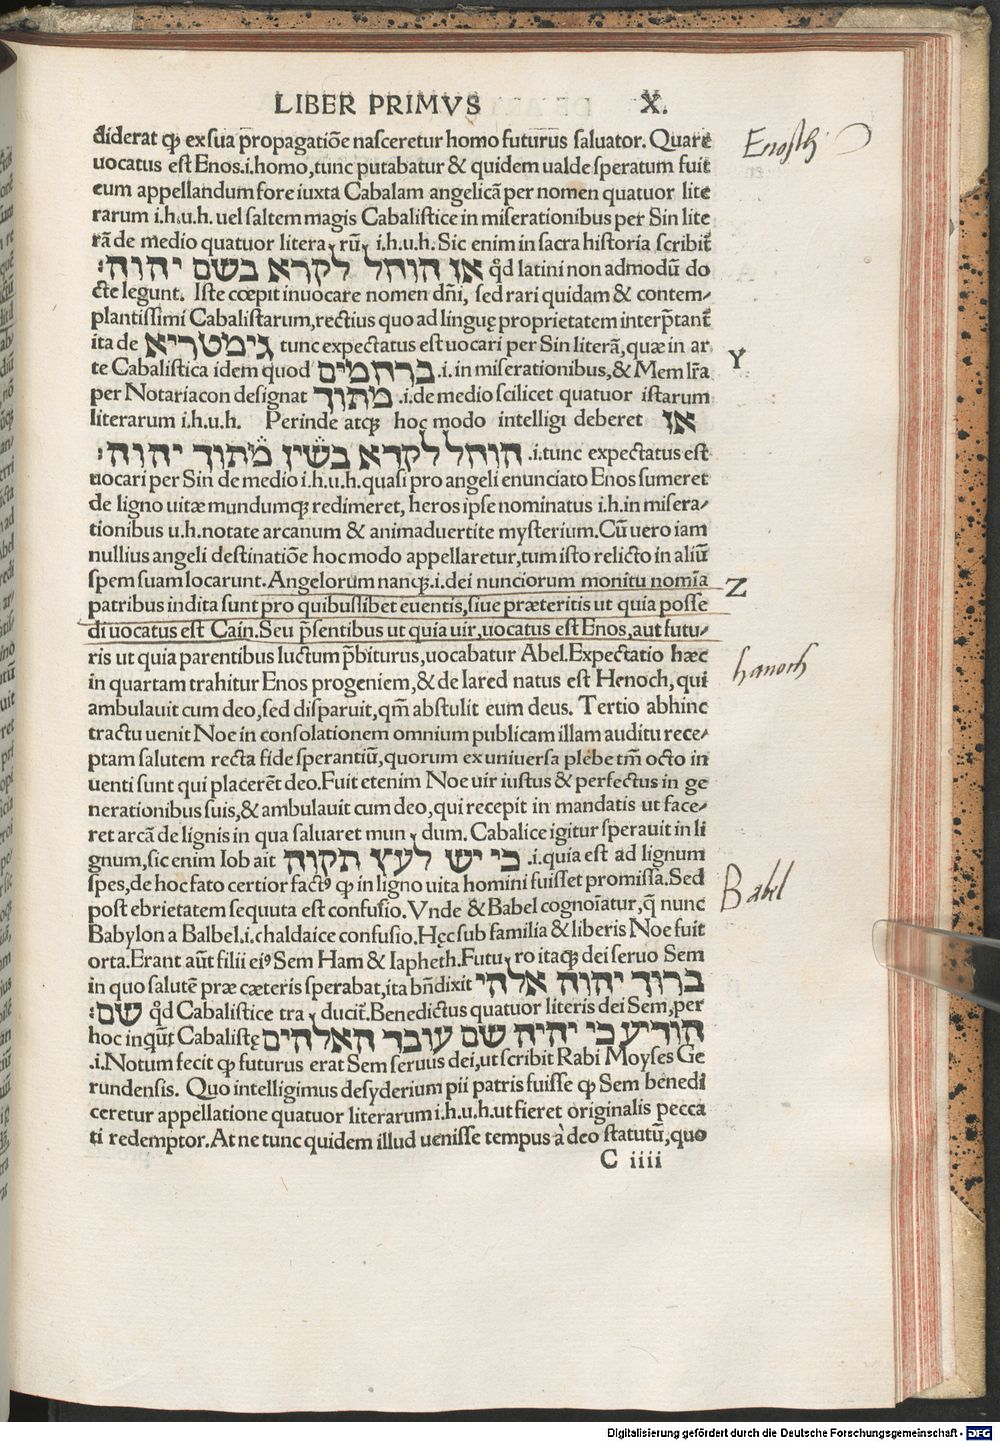 LIBER PRIMVS X.
diderat ꝙ ex sua ꝓpropagatiõe nasceretur homo futurus saluator. Quare
uocatus est Enos.i.homo,tunc putabatur & quidem ualde speratum fuit
eum appellandum fore iuxta Cabalam angelicã per nomen quatuor lite
rarum i.h.u.h. uel saltem magis Cabalistice in miserationibus per Sin lite
rã de medio quatuor litera rũ i.h.u.h. Sic enim in sacra historia scribit̃
אז הוחל לקרא בשם יהוה: qd̃ latini non admodũ do
cte legunt. Iste cœpit inuocare nomen dñi, sed rari quidam & contem-
plantissimi Cabalistarum,rectius quo ad linguę proprietatem interp̃tant̃
ita de גימטריא tunc expectatus est uocari per Sin literã,quæ in ar
te Cabalistica idem quod ברחמים .i.in miserationibus,& Mem lr̃a
per Notariacon designat מתוך .i.de medio scilicet quatuor istarum
literarum i.h.u.h. Perinde atqꝫ hoc modo intelligi deberet אז
הוחל לקרא בשין מתוך יהוה: .i.tunc expectatus est
uocari per Sin de medio i.h.u.h.quasi pro angeli enunciato Enos sumeret
de ligno uitæ mundumqꝫ redimeret, heros ipse nominatus i.h.in misera-
tionibus u.h.notate arcanum & animaduertite mysterium.Cũ uero iam
nullius angeli destinatiõe hoc modo appellaretur,tum isto relicto in aliũ
spem suam locarunt.Angelorum nanqꝫ.i.dei nunciorum monitu nomĩa
patribus indita sunt pro quibuslibet euentis,siue præteritis ut quia posse
di uocatus est Cain.Seu p̃sentibus ut quia uir,uocatus est Enos,aut futu-
ris ut quia parentibus luctum p̃biturus,uocabatur Abel.Expectatio hæc
in quartam trahitur Enos progeniem,& de Iared natus est Henoch,qui
ambulauit cum deo,sed disparuit,qm̃ abstulit eum deus. Tertio abhinc
tractu uenit Noe in consolationem omnium publicam illam auditu rece-
ptam salutem recta fide sperantiũ,quorum ex uniuersa plebe tm̃ octo in
uenti sunt qui placerẽt deo.Fuit etenim Noe uir iustus & perfectus in ge
nerationibus suis,& ambulauit cum deo,qui recepit in mandatis ut face-
ret arcã de lignis in qua saluaret mun dum. Cabalice igitur sperauit in li
gnum,sic enim Iob ait כי יש לעץ תקוה .i.quia est ad lignum
spes,de hoc fato certior factꝰ ꝙ in ligno uita homini fuisset promissa.Sed
post ebrietatem sequuta est confusio.Vnde & Babel cognoĩatur,q̃ nunc
Babylon a Balbel.i.chaldaice confusio.Hęc sub familia & liberis Noe fuit
orta.Erant aũt filii eiꝰ Sem Ham & Iapheth.Futu ro itaqꝫ dei seruo Sem
in quo salutẽ præ cæteris sperabat,ita bñdixit ברוך יהוה אלהי
שם: qd̃ Cabalistice tra ducit̃.Benedictus quatuor literis dei Sem,per
hoc inquũt Cabalistę הודיע כי יהיה שם עובד האלהים
.i.Notum fecit ꝙ futurus erat Sem seruus dei,ut scribit Rabi Moyses Ge
rundensis. Quo intelligimus desyderium pii patris fuisse ꝙ Sem benedi
ceretur appellatione quatuor literarum i.h.u.h.ut fieret originalis pecca
ti redemptor.At ne tunc quidem illud uenisse tempus à deo statutũ,quo
C iiii
Enosh
Y
Z
hanoch
Babel
Digitalisierung gefördert durch die Deutsche Forschungsgemeinschaft - DFG